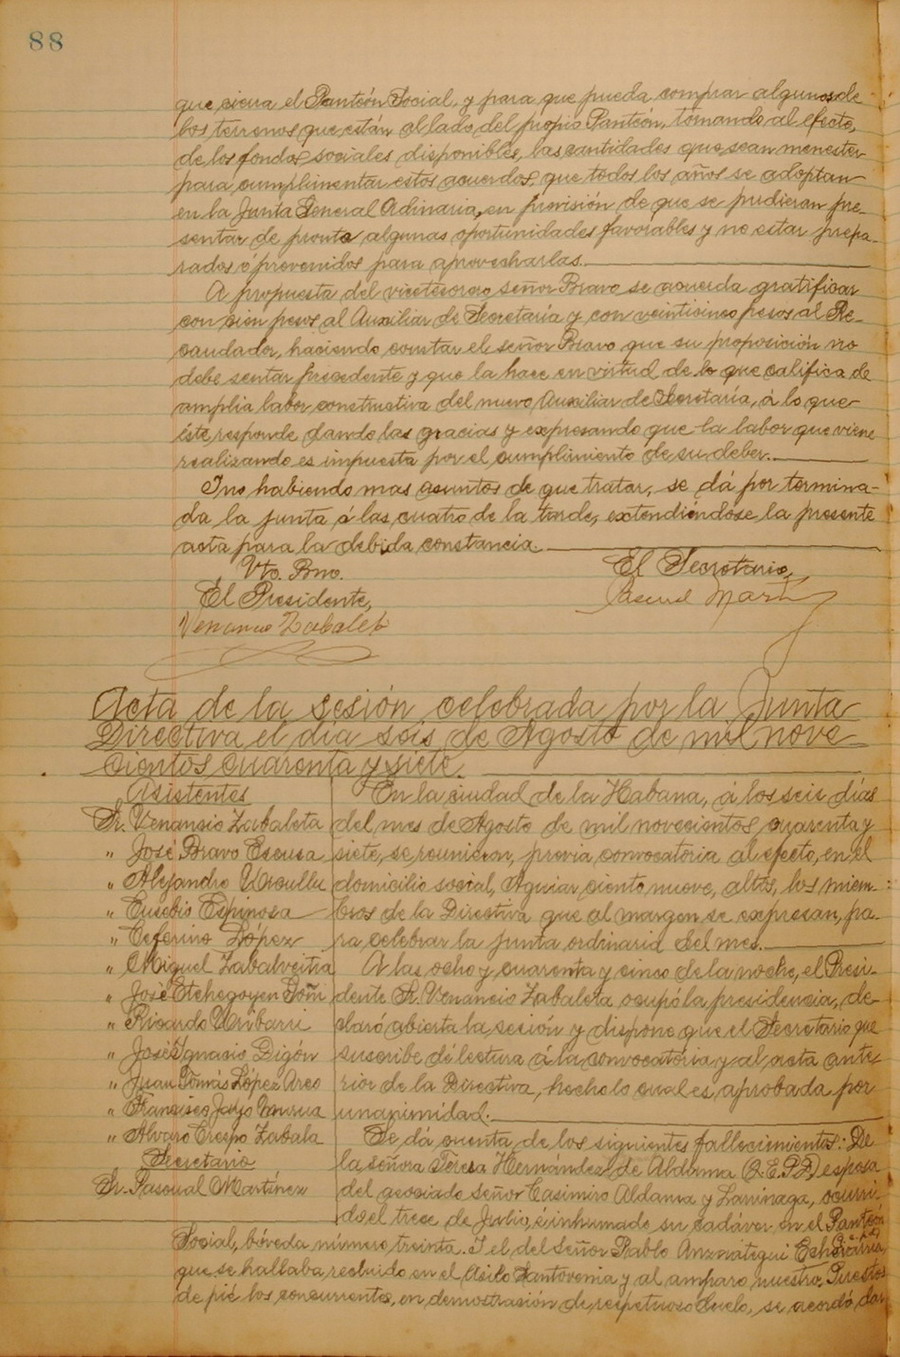 88
que cierra el Panteón Social, y para que pueda comprar algunos de
los terrenos que están al lado del propio Panteon, tomando al efecto,
de los fondos sociales disponibles, las cantidades que sean menester
para cumplimentar estos acuerdos, que todos los años se adoptan
en la Junta General Odinaria, en previsión de que se pudieran pre-
sentar de pronto algunas oportunidades favorables y no estar prepa-
rados o prevenidos para aprovecharlas.
A propuesta del vicetesorero señor Bravo se acuerda gratificar
con cien pesos al Auxiliar de Secretaría y con veinticinco pesos al Re-
caudador, haciendo constar el señor Bravo que su proposición no
debe sentar precedente y que la hace en virtud de lo que califica de
amplia labor constructiva del nuevo Auxiliar de Secretaría, á lo que
éste responde dando las gracias y expresando que la labor que viene
realizando es impuesta por el cumplimiento de su deber.
I no habiendo mas asuntos de que tratar, se dá por termina-
da la junta á las cuatro de la tarde, extendiéndose la presente
acta para la debida constancia.
Vto. Bno.
El Presidente,
Venancio Zabaleta
El Secretario,
Pascual Martínez
Acta de la sesión celebrada por la Junta
Directiva el día seis de Agosto de mil nove-
cientos cuarenta y siete.
Asistentes
Sr. Venancio Zabaleta
" José Bravo Escusa
" Alejandro Urcullu
" Eusebio Espinosa
" Ceferino López
" Miguel Zabalveitia
" José Etchegoyen Goñi
" Ricardo Uribarri
" José Ignacio Digón
" Juan Tomás López Arco
" Francisco Jayo
" Alvaro Crespo Zabala
Secretario
Sr. Pascual Martínez
En la ciudad de la Habana, á los seis días
del mes de Agosto de mil novecientos cuarenta y
siete, se reunieron, previa convocatoria al efecto, en el
domicilio social, Aguiar ciento nueve, altos, los miem-
bros de la Directiva que al margen se expresan, pa-
ra celebrar la junta ordinaria del mes.
A las ocho y cuarenta y cinco de la noche, el Presi-
dente Sr. Venancio Zabaleta ocupó la presidencia, de-
claró abierta la sesión y dispone que el Secretario que
suscribe dé lectura á la convocatoria y al acta ante-
rior de la Directiva, hecho lo cual es aprobada por
unanimidad.
Se dá cuenta de los siguientes fallecimientos: De
la señora Teresa Hernández de Aldama (Q.E.P.D.) esposa
del asociado señor Casimiro Aldama y Larrinaga, ocurri-
do el trece de Julio, é inhumado su cadáver en el Panteón
Social, bóveda número treinta. I el del señor Pablo Anzuategui Echevarria,
que se hallaba recluido en el Asilo Santovenia y al amparo nuestro. Puestos
de pié los concurrentes, en demostración de respetuoso duelo, se acordó dar